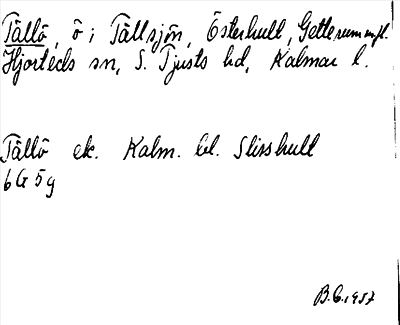 Tällö, ö i Tällsjön, Österhult, Getterum m.fl.
Hjorteds sn, S. Tjusts hd, Kalmar l.
Tällö ek. Kalm. bl. Slisshult
6G 5g
B.C. 1957